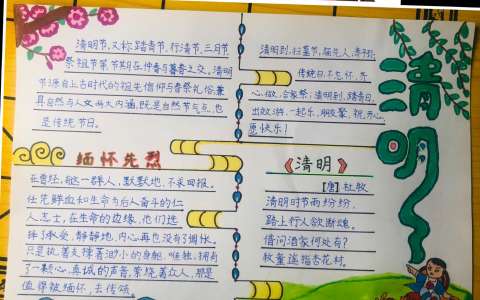 清明节,又称踏青节、行清节、三月节
祭祖节等,节期在仲春与暮春之交。清明
节源自上古时代的祖先信仰与春祭礼俗,兼
具自然与人文两大内涵,既是自然节气点,也
是传统节日。
清明到,扫墓节,福先人,寿子孙;
传统日,不忘怀,齐
心做,合家祭;清明到,踏青日,
出外游,一起乐,朋友聚,祝,开心,
愿快乐!
清明
缅怀先烈
在曾经,有这一群人,默默地,不求回报。
任凭鲜血和生命为后人奋斗的仁
人志士,在生命的边缘,他们选
择了承受,静静地,内心再也没有了惆怅。
只是执著支撑着渺小的身躯,唯独,拥有
了一颗心,真诚的声音,萦绕着众人,那是
值得被缅怀,去传颂。
《清明》
【唐】杜牧
清明时节雨纷纷,
路上行人欲断魂。
借问酒家何处有?
牧童遥指杏花村。